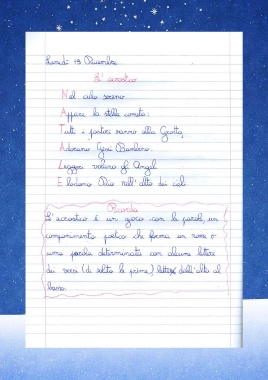 Lunedì 19 Dicembre
L'acrostico
Nel cielo sereno
Appare la stella cometa:
Tutti i pastori vanno alla Grotta,
Adorano Gesù Bambino.
Leggeri volano gli Angeli
E lodano Dio nell'alto dei cieli
Ricorda
L'acrostico è un gioco con le parole, un
componimento poetico che forma un nome o
una parola determinata con alcune lettere
dei versi (di solito le prime) lette dall'alto al
basso.